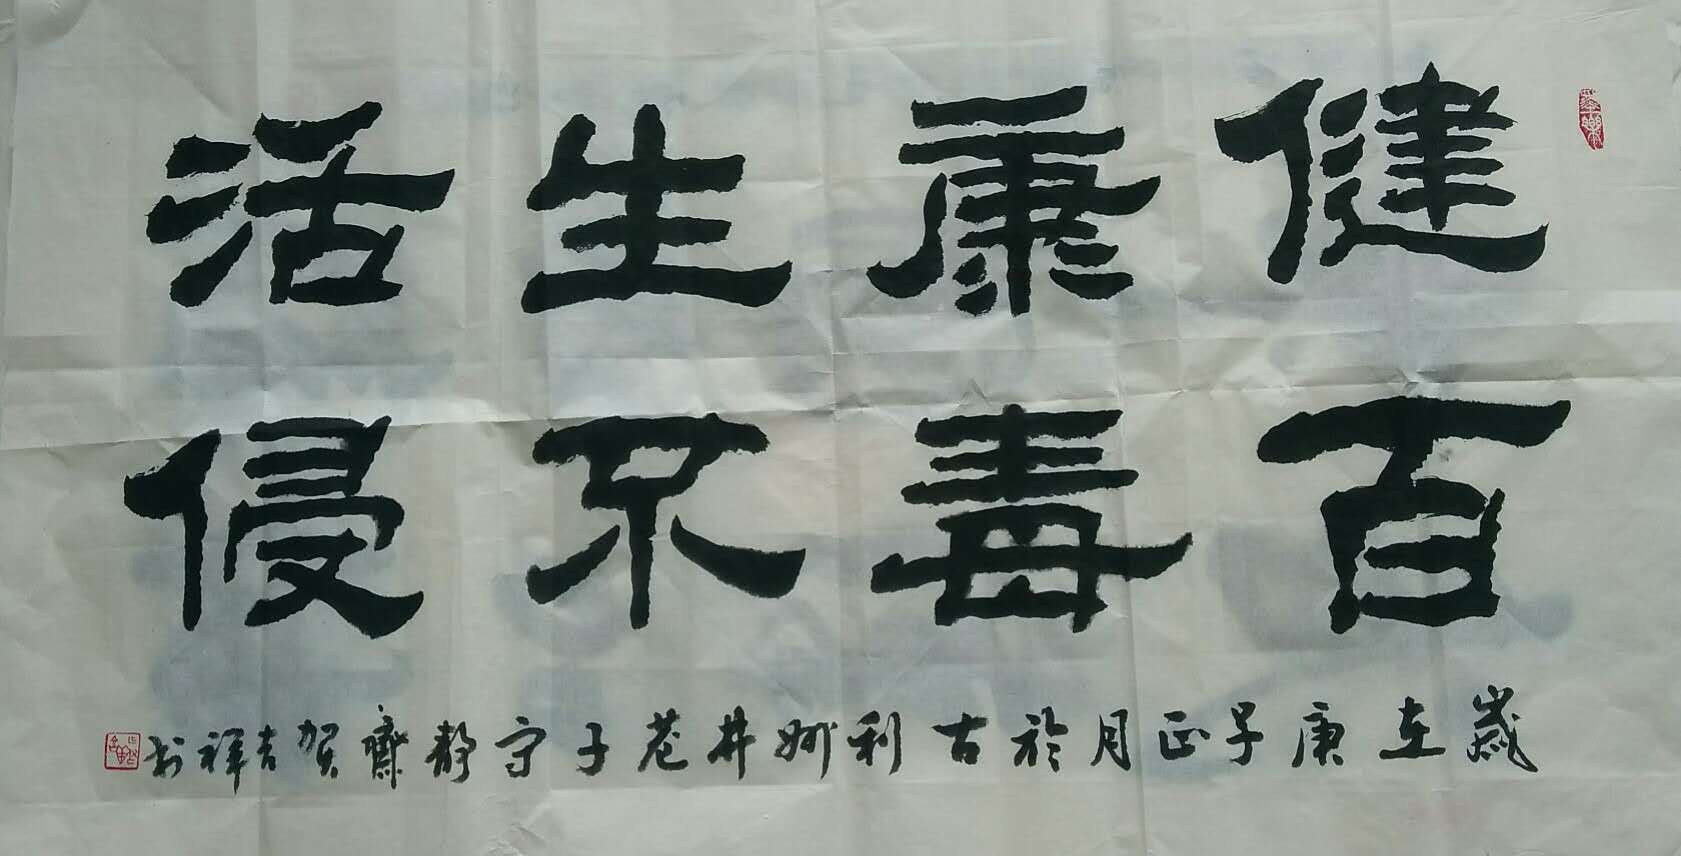 健康生活
百毒不侵
歲在庚子正月於古利州井花子守靜齋賀吉祥書